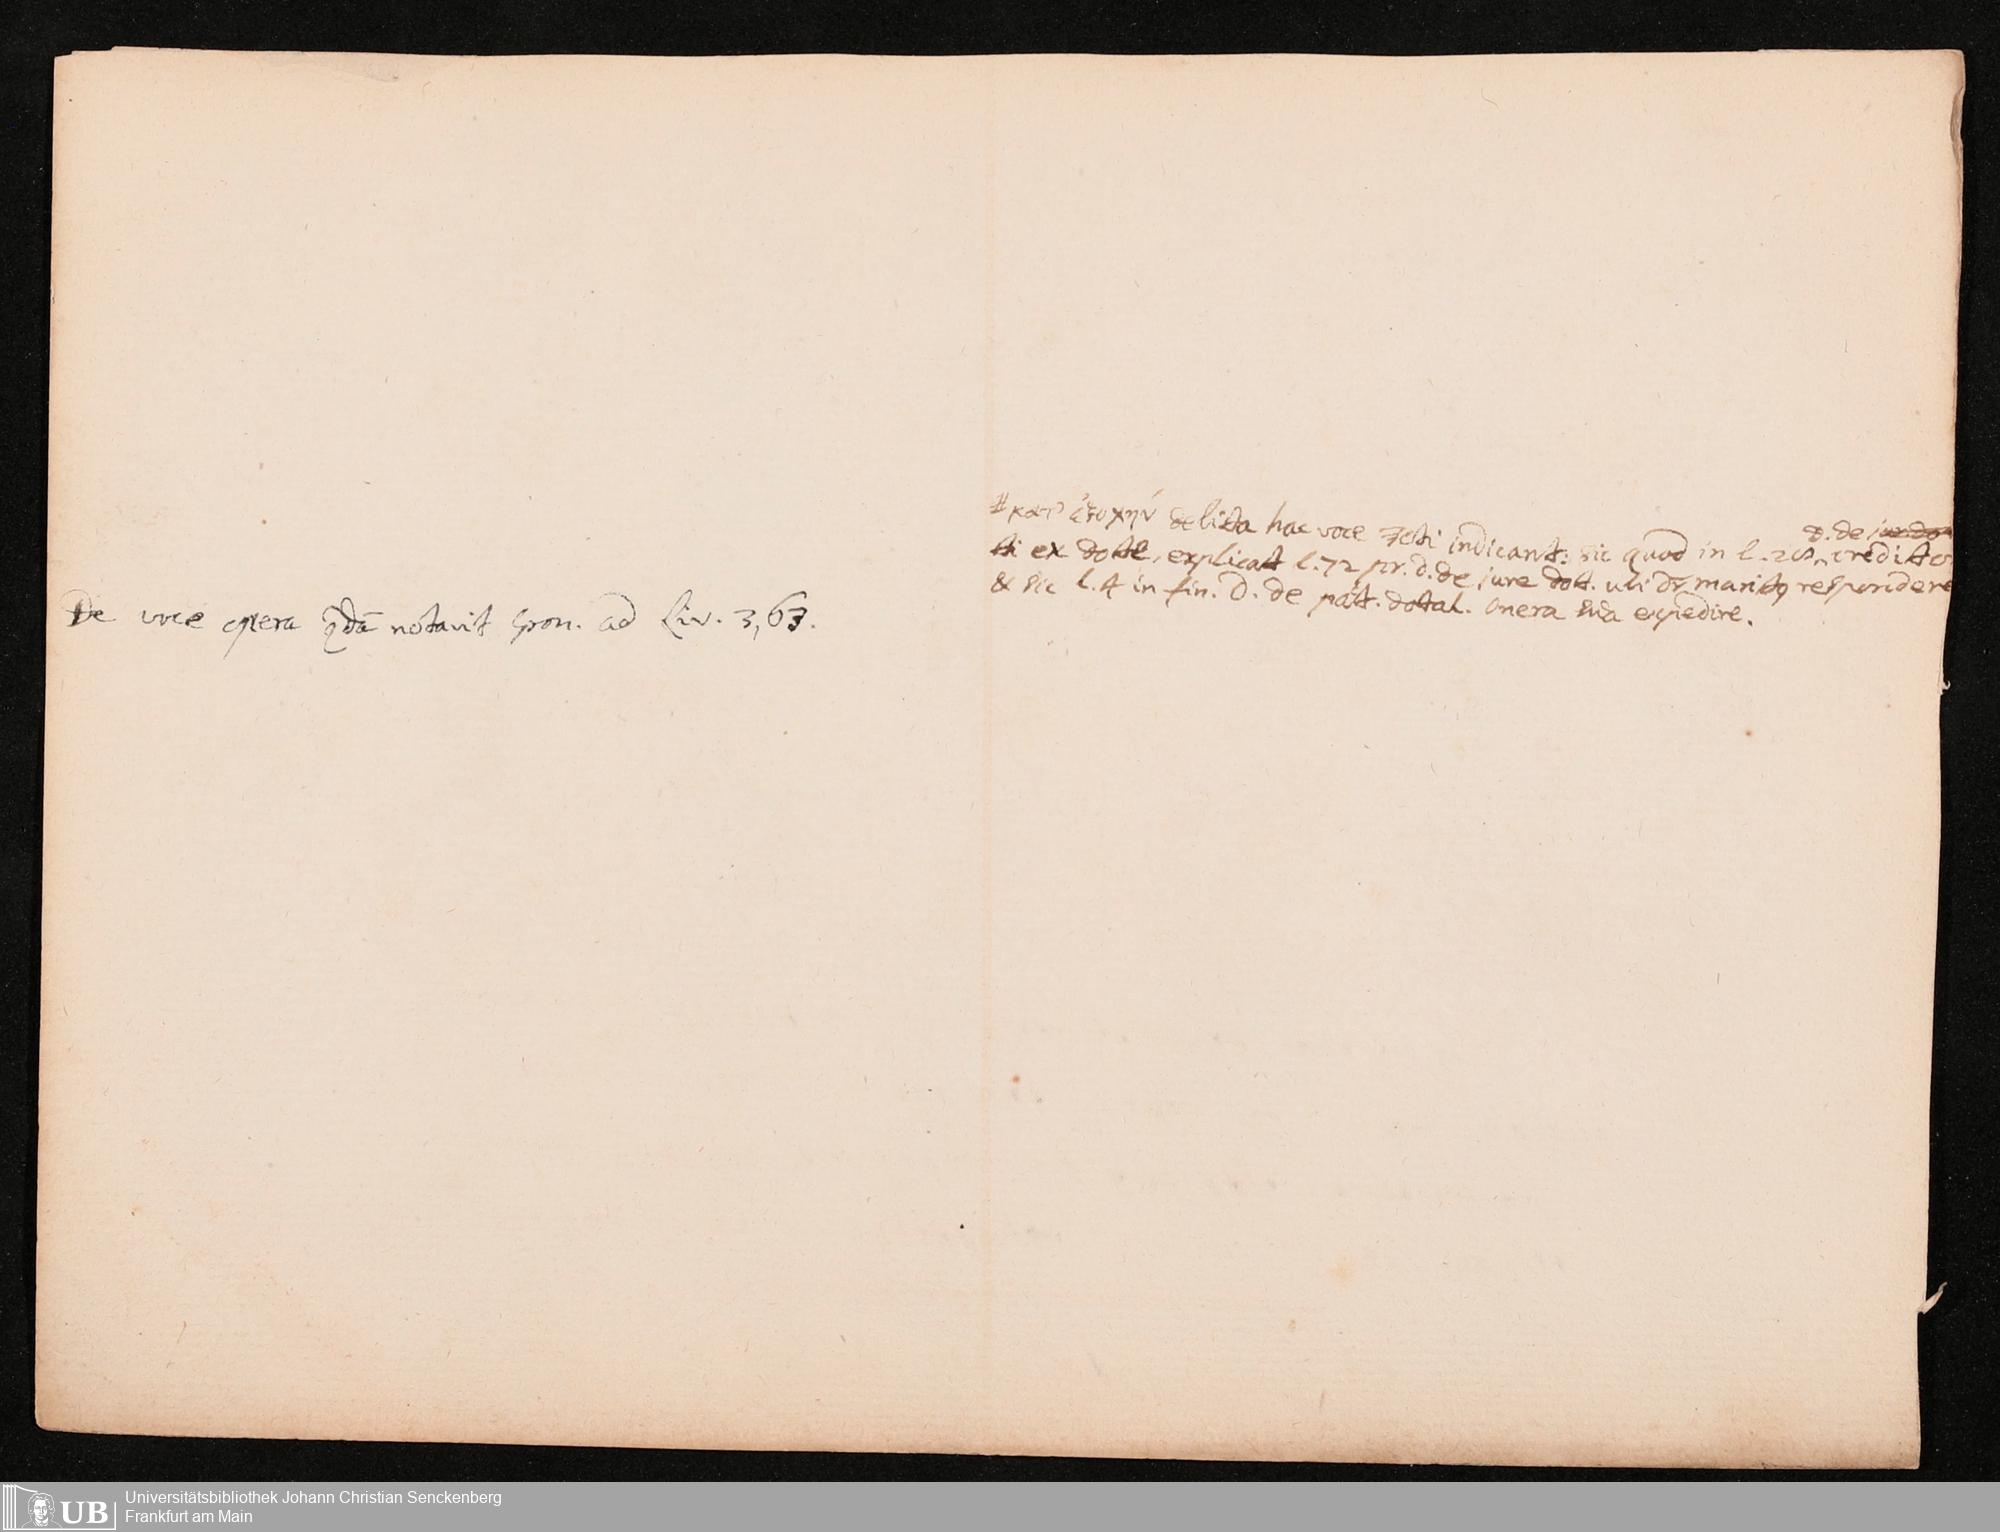 De voce opera qdā notavit Gron. ad Liv. 3,63.
# κατ' ἐξοχήν debita hac voce Icti indicant: sic quod in l. D. de
credito
ti ex dote, explicat l. 72 pr. D. de jure dot. ubi dr marito respondere
& sic l. 4 in fin. D. de pact. dotal. onera sua expedire.
UB
Universitätsbibliothek Johann Christian Senckenberg
Frankfurt am Main